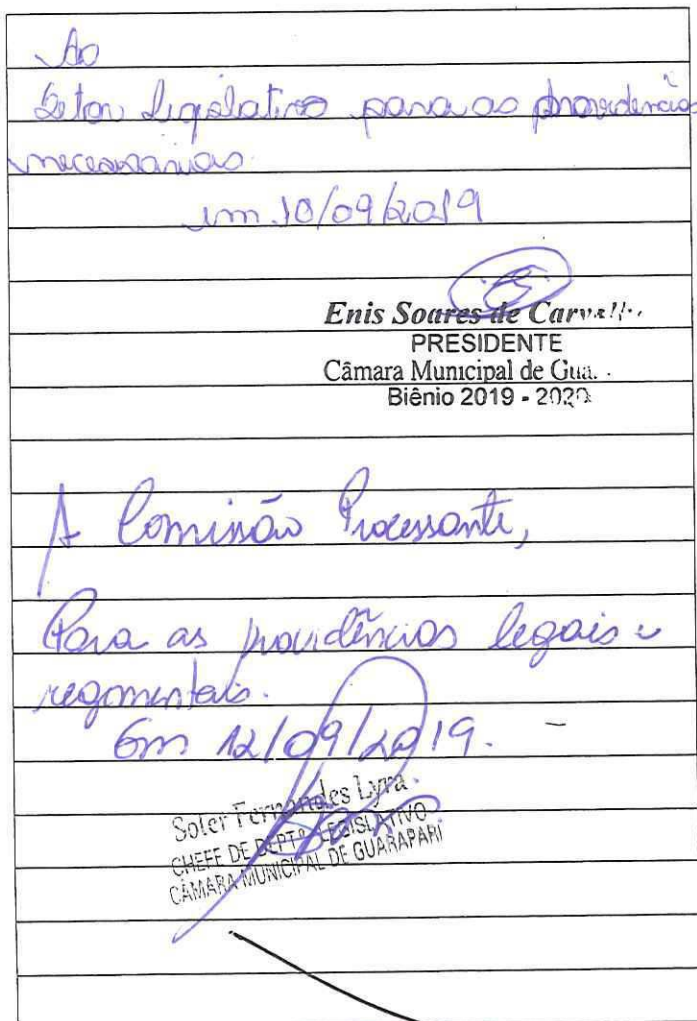 Ao
Setor Legislativo para as providências
necessárias.
em 10/09/2019
Enis Soares de Carvalho
PRESIDENTE
Câmara Municipal de Gua
Biênio 2019 - 2020
A Comissão Processante,
Para as providências legais e
regimentais.
Em 12/09/2019.
Soler Fernandes Lyra
CHEFE DE DEPTº LEGISLATIVO
CÂMARA MUNICIPAL DE GUARAPARI